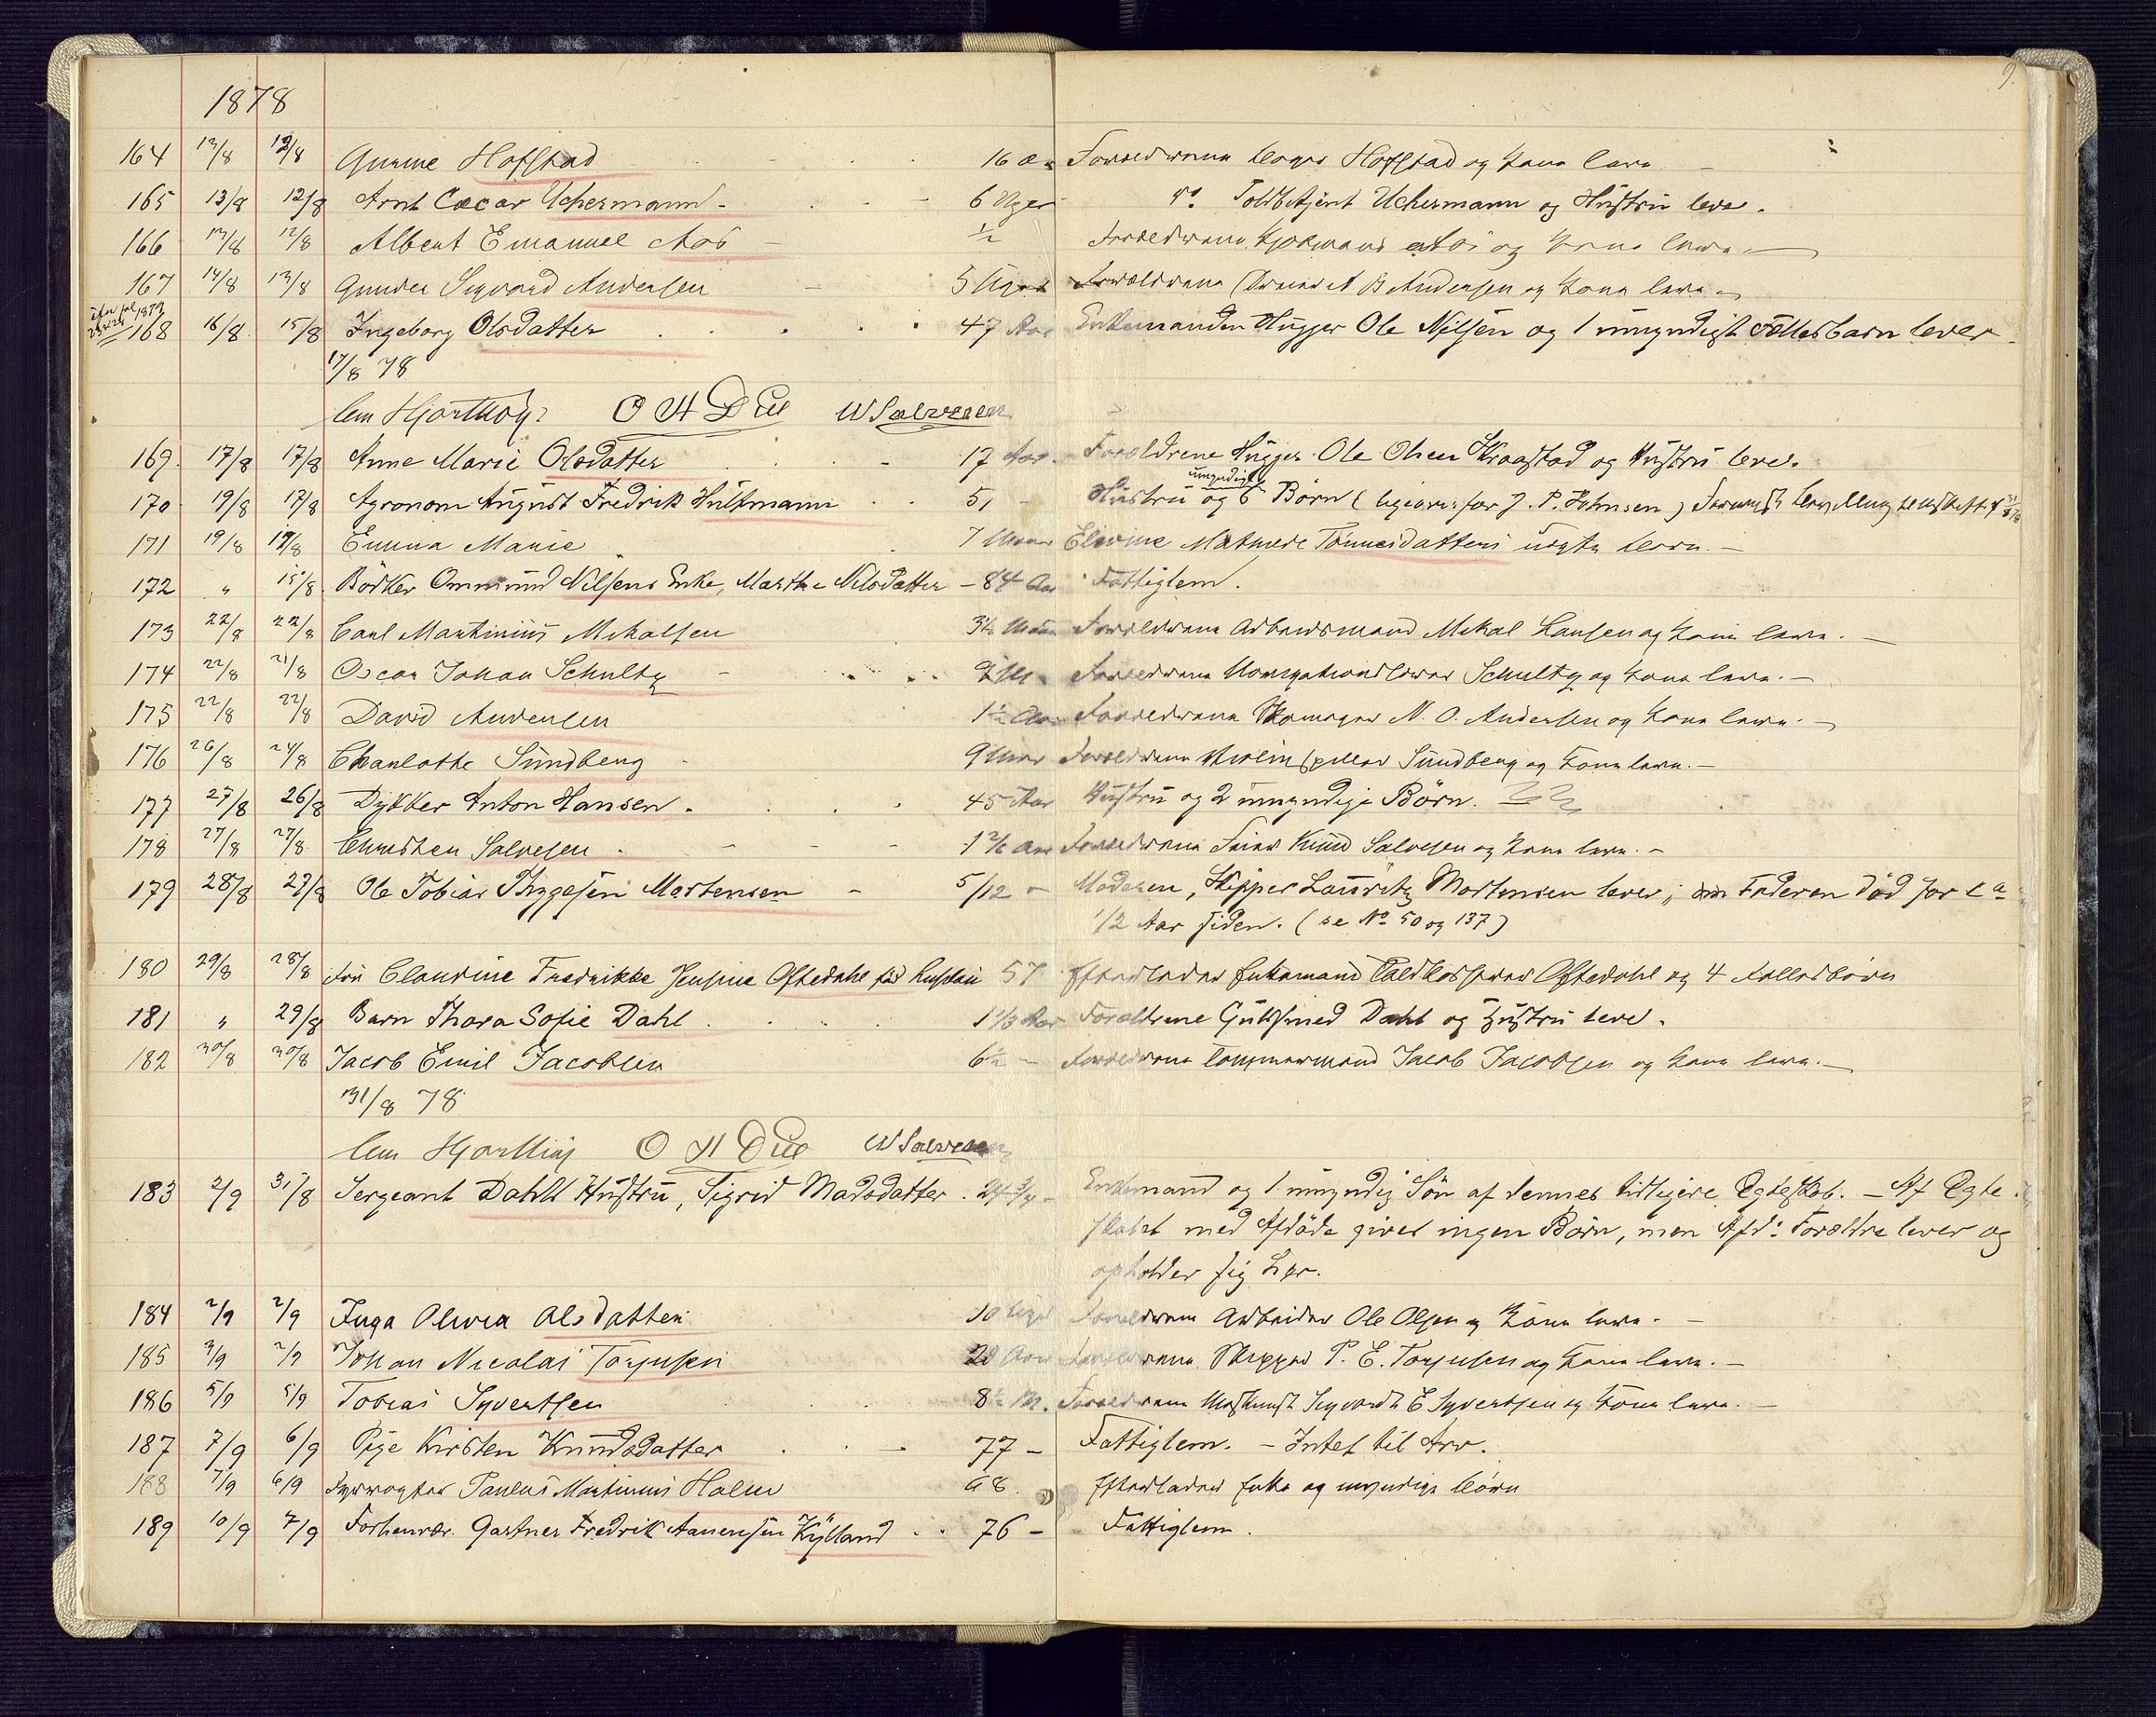 9.
1878
164 13/8 12/8 Gunne Hofstad 16 Forældrene Hofstad og Kone lever
165 13/8 12/8 Arnt Oscar Uchermann 6 Uger do Toldbetjent Uchermann og Hustru lever.
166 13/8 12/8 Albert Emanuel Aas 1/2 Forældrene og Kone lever
167 14/8 13/8 Gunder Sigvard Andersen 5 Uger Forældrene A B Andersen og Kone lever
168 16/8 15/8 Ingeborg Olsdatter 47 Aar Enkemanden Hugger Ole Nilsen og 1 umyndigt Fællesbarn lever
17/8 78
O H Due W Salvesen
169. 17/8 17/8 Anne Marie Olsdatter 17 Aar. Forældrene Hugger Ole Olsen Kragstad og Hustru lever.
umyndige
170 19/8 17/8 Agronom August Fredrik Hultmann 51 - Hustru og 6 Børn ( J. P. Johnsen )
171 19/8 19/8 Emma Marie 7 Elevine Mathilde Tønnesdatters uægte Barn. -
172 " 15/8. Bödker Ommund Nilsens Enke, Marthe Nilsdatter - 84 Aar Fattiglem.
173 22/8 22/8 Carl Martinius Mikalsen 3 1/2 Forældrene Arbeidsmand Mikal Hansen og Kone lever. -
174 22/8 21/8 Oscar Johan Schultz 9 M. Forældrene Schultz og Kone lever. -
175 22/8 22/8 David Andersen 1 1/2 Aar Forældrene Skomager N. O. Andersen og Kone lever. -
176 26/8 24/8 Charlotte Sundberg 9 Forældrene Violinspiller Sundberg og Kone lever. -
177 27/8 26/8 Dykker Anton Hansen. 45 Aar Hustru og 2 umyndige Börn.
178 27/8 27/8 Christen Salvesen. 1 Aar Forældrene Knud Salvesen og Kone lever. -
179 28/8 27/8 Ole Tobias Thygesen Mortensen - 5/12 - Moderen, Skipper Lauritz Mortensen lever; Faderen död for ca
1/2 Aar siden. (se No 50 og 137)
180 29/8 28/8 Fru Claudine Fredrikke Jensine Oftedahl född 57 Efterlader Enkemand Toldkasserer Oftedahl og 4 Fællesbörn
181 " 29/8 Barn Thora Sofie Dahl 1 1/3 Aar Forældrene Guldsmed Dahl og Hustru lever.
182 30/8 30/8 Jacob Emil Jacobsen 6 1/2 - Forældrene Tømmermand Jacob Jacobsen og Kone lever. -
31/8 78
O H Due W Salvesen
183 2/9 31/8 Sergeant Dahls Hustru, Sigrid Madsdatter. 24 3/4 - Enkemand og 1 umyndig Sön af dennes tidligere Egteskab. - Af Egte
skabet med Afdöde gives ingen Börn, men Afd: Forældre lever og
opholder sig her.
184 2/9 2/9 Inga Olivia Olsdatter 10 Uger Forældrene Arbeider Ole Olsen og Kone lever. -
185 3/9 2/9 Johan Nicolai Torjusen 20 Aar Forældrene Skipper P. E. Torjusen og Kone lever. -
186 5/9 5/9 Tobias Syvertsen 8 1/2 M. Forældrene Sigvardt E Syvertsen og Kone lever. -
187 7/9 6/9 Pige Kirsten Knudsdatter 77 - Fattiglem. - Intet til Arv.
188 7/9 6/9 Fyrvogter Paulus Martinius Holm 68 Efterlader Enke og umyndige Börn
189 10/9 7/9 Forhenvær. Gartner Fredrik Aanensen Kylland 76 - Fattiglem.